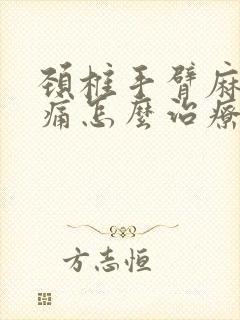 頸椎手臂麻
痛怎麼治療
方志恒